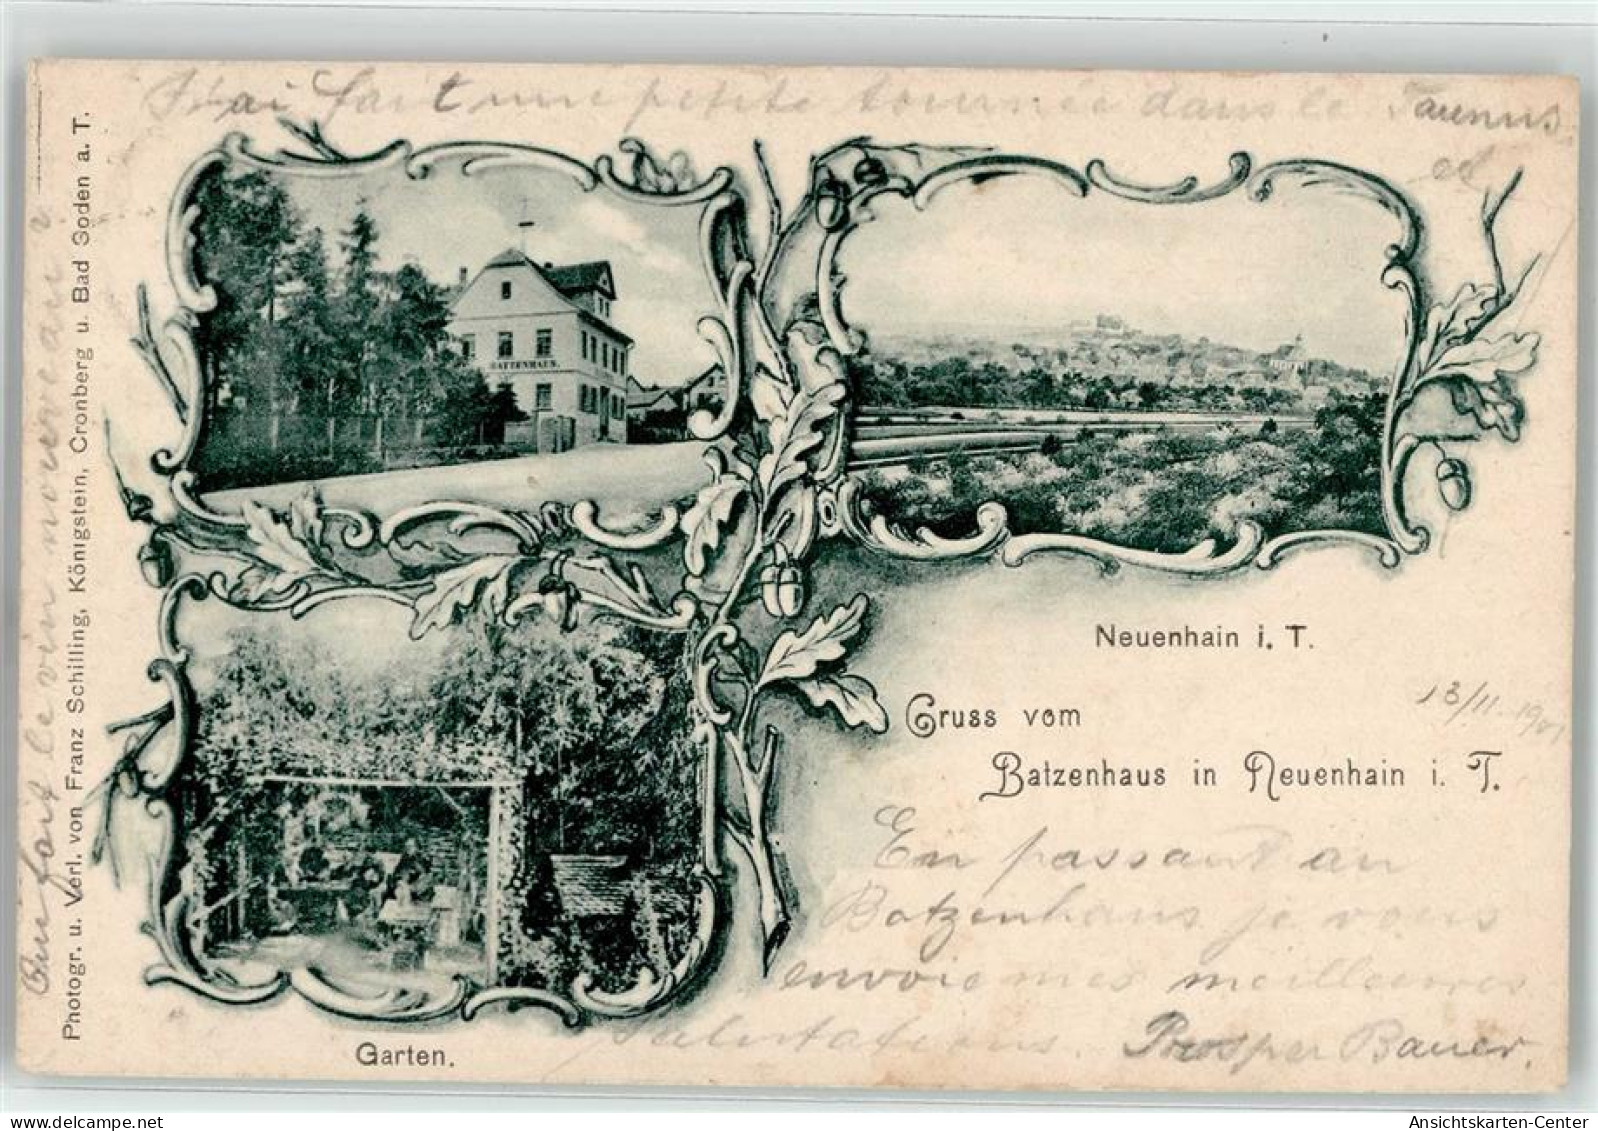 J'ai fait une petite tournée dans le Taunus
et
on fait le vin nouveau
Photogr. u. Verl. von Franz Schilling, Königstein, Cronberg u. Bad Soden a. T.
BATZENHAUS.
Neuenhain i. T.
13/11. 1901
Gruss vom
Batzenhaus in Neuenhain i. T.
En passant au
Batzenhaus je vous
envoie mes meilleures
salutations. Prosper Bauer.
Garten.
Ansichtskarten-Center